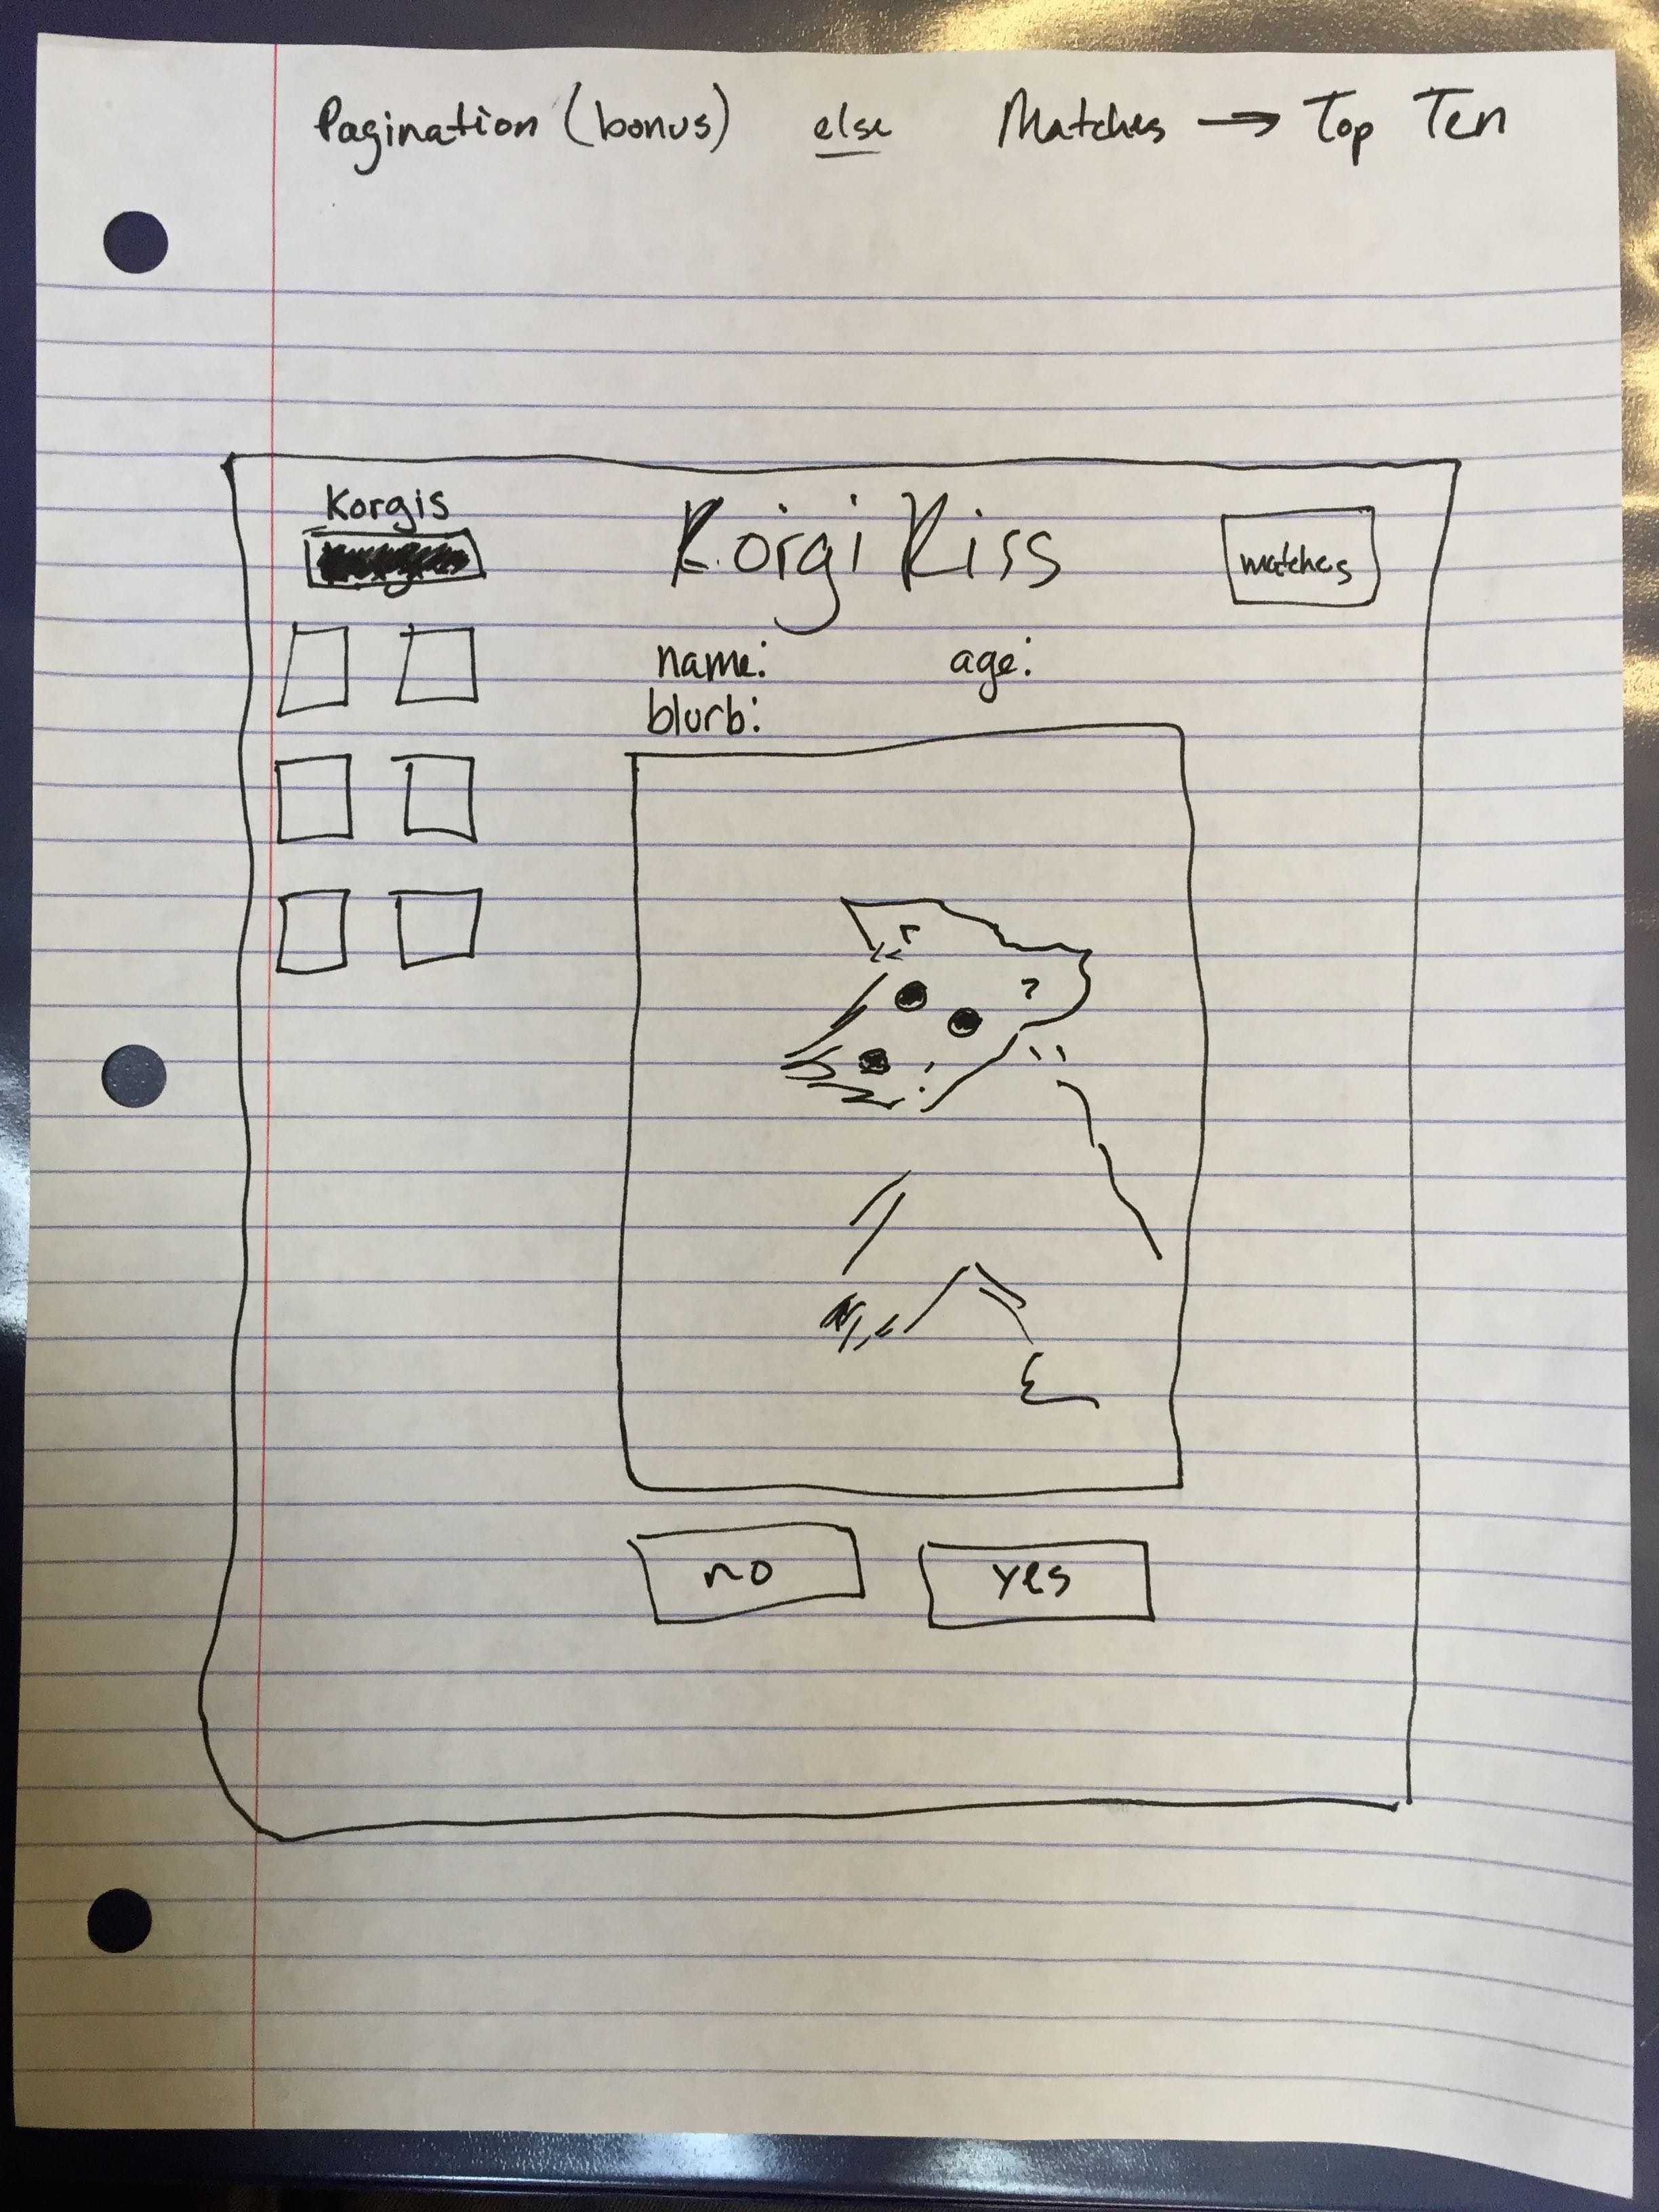 Pagination (bonus) else Matches → Top Ten
Korgis
Korgi Kiss
matches
name: age:
blurb:
no yes